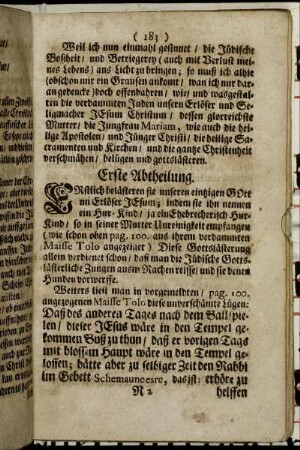 ( 183 )
Weil ich nun einmahl gesinnet / die Jüdische
Boßheit / und Betriegerey (auch mit Verlust mei-
nes Lebens) ans Licht zu bringen; so muß ich alhie
(obschon mir ein Grausen ankomt / wan ich nur dar-
an gedencke) doch offenbahren / wie / und waßgestal-
ten die verdammten Juden unsern Erlöser und Se-
ligmacher JEsum Christum / dessen glorreichste
Mutter / die Jungfrau Mariam, wie auch die hei-
lige Apostolen / und Jünger Christi / die heilige Sa-
cramenten und Kirchen / und die gantze Christenheit
verschmähen / belügen und gotteslästeren.
Erste Abtheilung.
ERstlich belästeren sie unseren eintzigen GOtt
und Erlöser JEsum; indem sie ihn nennen
ein Hur-Kind / ja ein Ehebrecherisch Hur-
Kind / so in seiner Mutter Unreinigkeit empfangen
(wie schon oben pag. 100. aus ihrem verdammten
Maisse Tolo angezeiget) Diese Gotteslästerung
allein verdienet schon / daß man die Jüdische Gotts-
lästerliche Zungen aussm Rachen reisse / und sie denen
Hunden vorwerffe.
Weiters liest man in vorgemelten / pag. 100.
angezogenen Maisse Tolo diese unverschämte Lügen:
Daß des anderen Tages nach dem Ball spie-
len / dieser JEsus wäre in den Tempel ge-
kommen Buß zu thun / daß er vorigen Tags
mit blossem Haupt wäre in den Tempel ge-
loffen; hätte aber zu selbiger Zeit den Rabbi
im Gebett Schemauneesre, das ist: erhöre zu
N 2 helffen